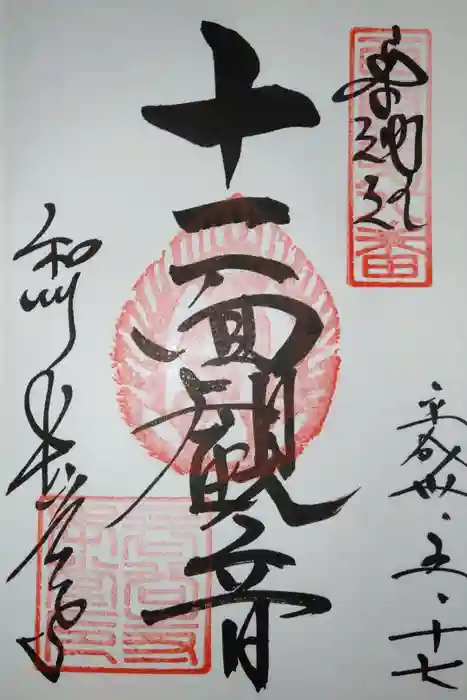 奉納経
平成卅・五・十七
十一面観音
和州 長谷寺